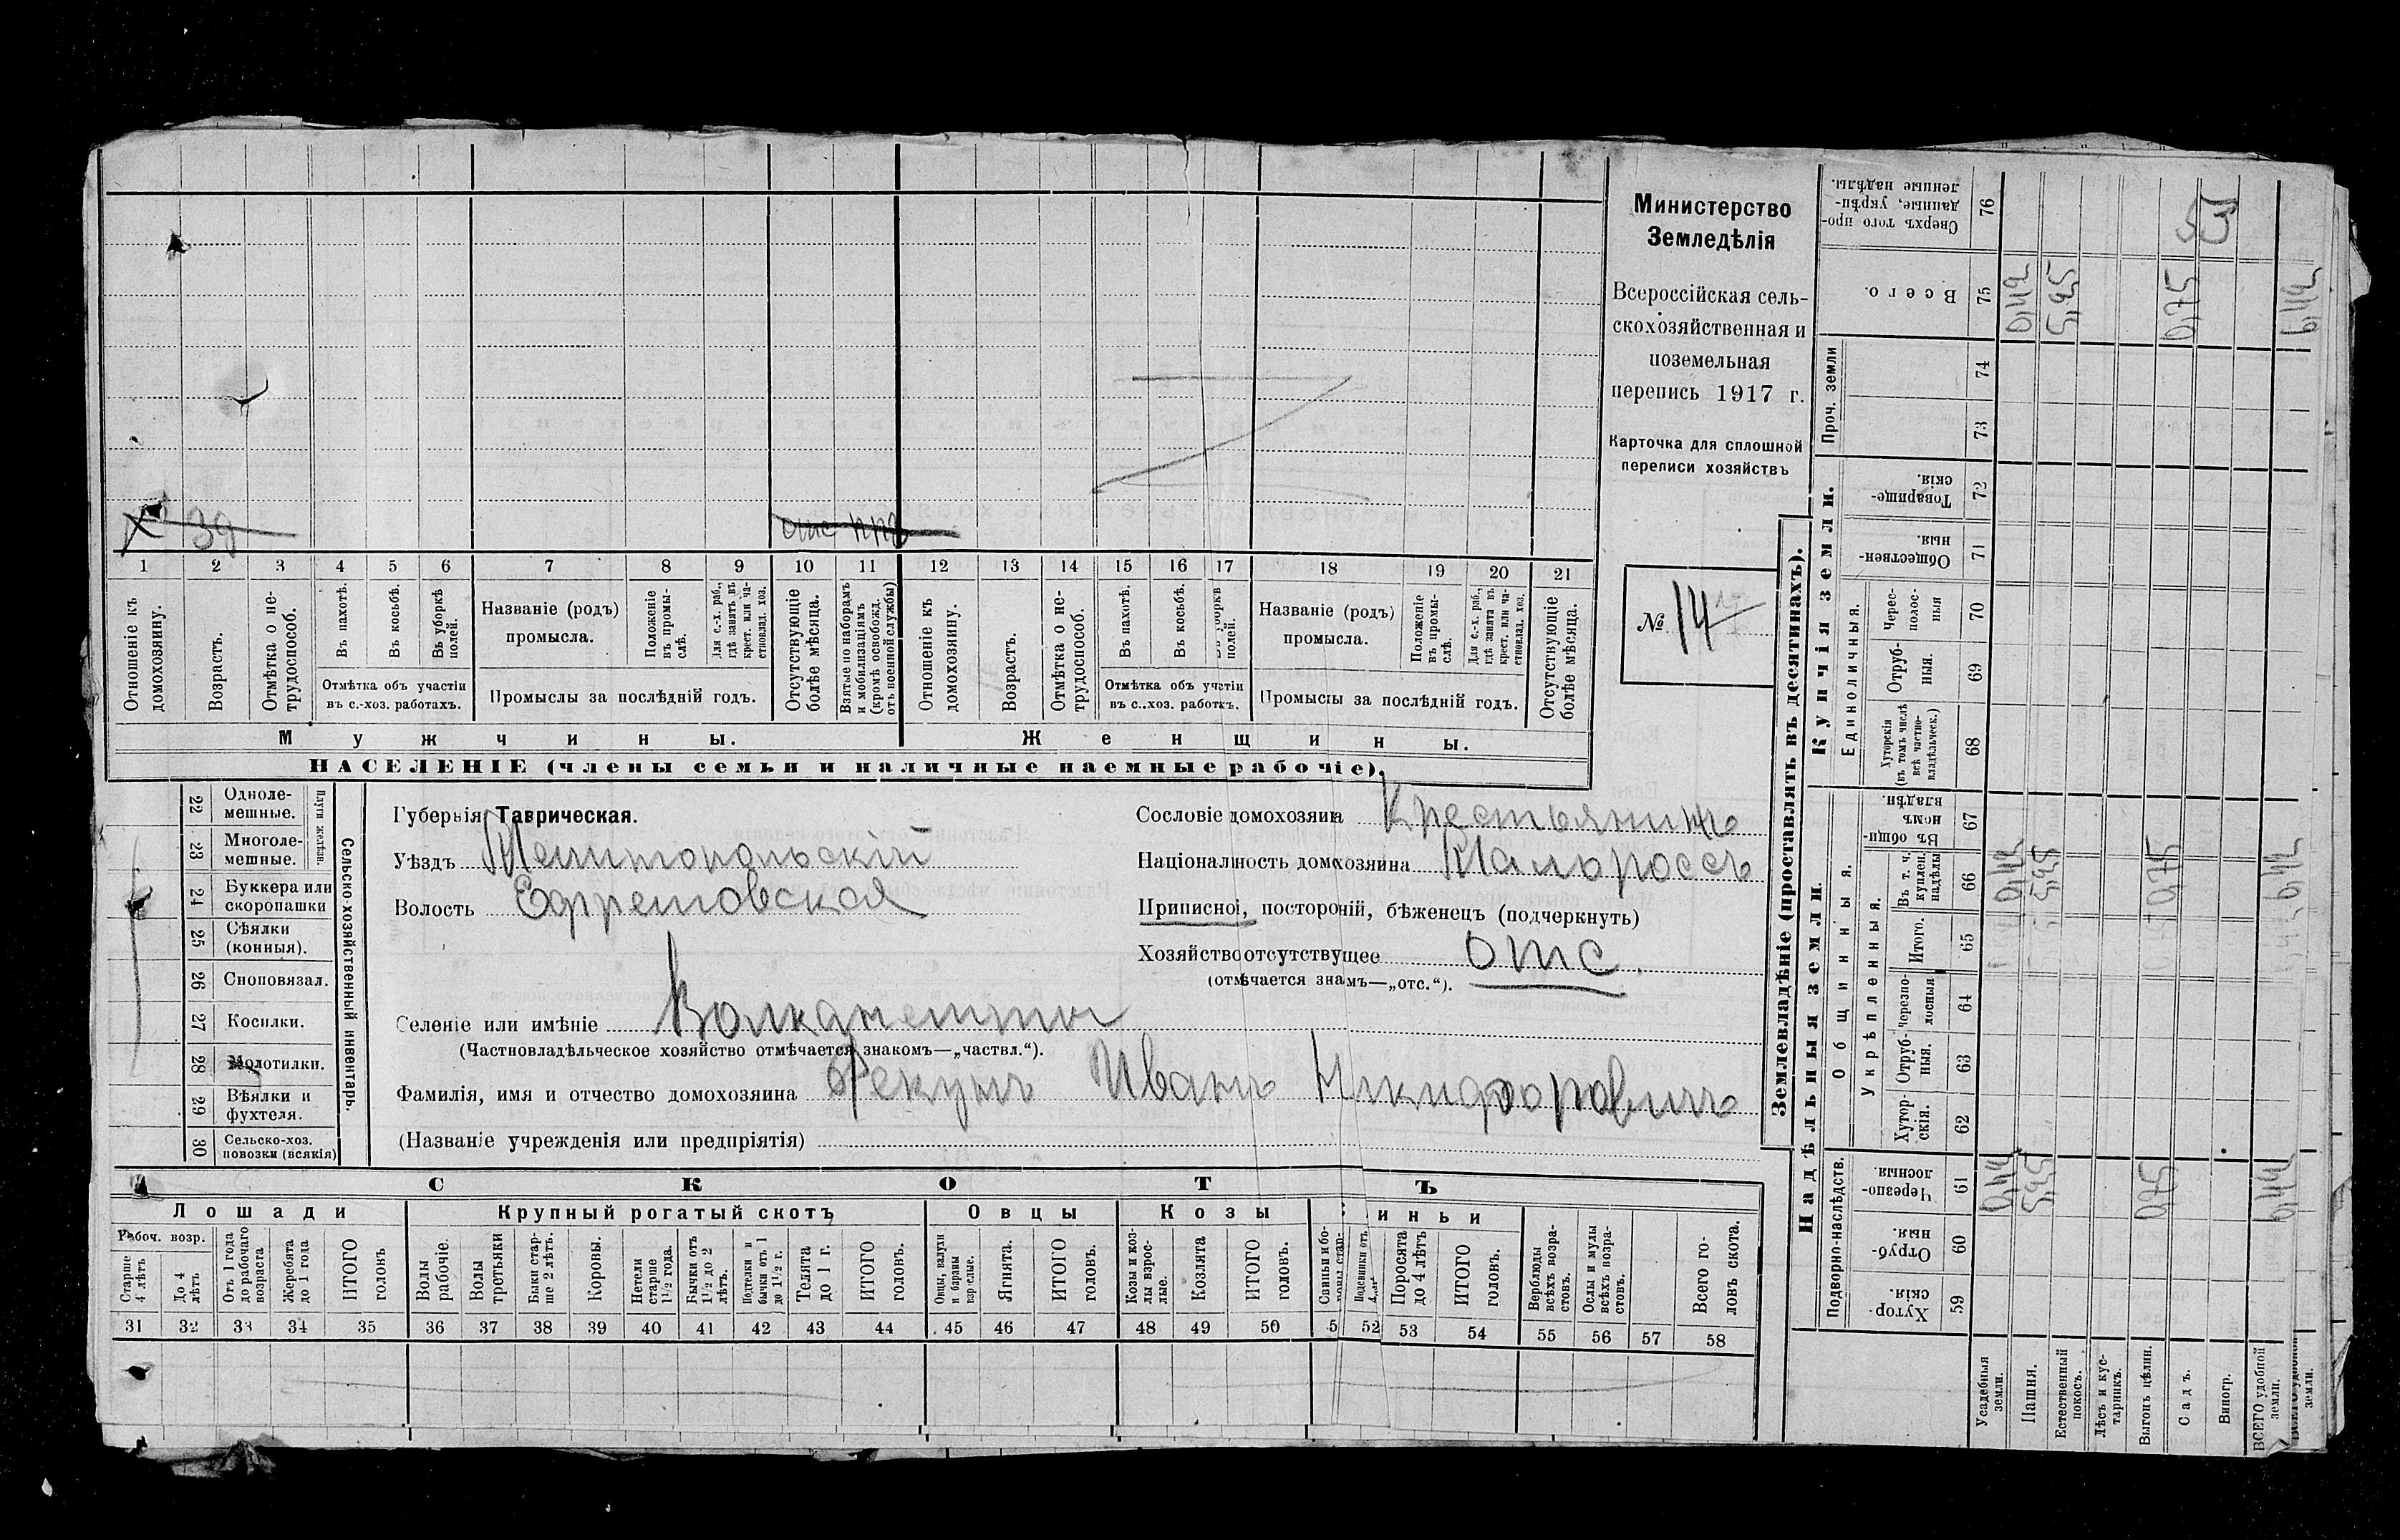 Министерство
Земледѣлія
Всероссійская сель-
скохозяйственная и
поземельная
перепись 1917 г.
Карточка для сплошной
переписи хозяйствъ
№ 14
х 39 отс
1 2 3 4 5 6 7 8 9 10 11 12 13 14 15 16 17 18 19 20 21
Отношеніе къ домохозяину.
Возрастъ.
Отмѣтка о не-трудоспособ.
Въ пахотѣ.
Въ косьбѣ.
Въ уборкѣ полей.
Отмѣтка объ участіи
въ с.-хоз. работахъ.
Названіе (родъ)
промысла.
Положеніе въ промы-слѣ.
Для с.-х. раб., гдѣ занятъ въ крест. или ча-стновлад. хоз.
Промыслы за послѣдній годъ.
Отсутствующіе болѣе мѣсяца.
Взятые по наборамъ и мобилизаціямъ (кромѣ освобожд. отъ военной службы)
Отношеніе къ домохозяину.
Возрастъ.
Отмѣтка о не-трудоспособ.
Въ пахотѣ.
Въ косьбѣ.
Въ уборкѣ полей.
Отмѣтка объ участіи
въ с.-хоз. работахъ.
Названіе (родъ)
промысла.
Положеніе въ промы-слѣ.
Для с.-х. раб., гдѣ занята въ крест. или ча-стновлад. хоз.
Промыслы за послѣдній годъ.
Отсутствующіе болѣе мѣсяца.
Мужчины.
Женщины.
НАСЕЛЕНІЕ (члены семьи и наличные наемные рабочіе).
Сельско-хозяйственный инвентарь.
Плуги желѣзн.
22 Одноле-мешные.
23 Многоле-мешные.
24 Буккера или скоропашки
25 Сѣялки (конныя).
26 Сноповязал.
27 Косилки.
28 Молотилки.
29 Вѣялки и фухтеля.
30 Сельско-хоз. повозки (всякія)
Губернія Таврическая.
Уѣздъ Мелитопольскій
Волость Ефремовская
Сословіе домохозяина Крестьянинъ
Національность домохозяина Малороссъ
Приписной, посторонній, бѣженецъ (подчеркнуть)
Хозяйство отсутствующее отс.
(отмѣчается знамъ—„отс.“).
Селеніе или имѣніе
(Частновладѣльческое хозяйство отмѣчается знакомъ—„частвл.“).
Фамилія, имя и отчество домохозяина Фекунъ Иванъ Никифоровичъ
(Названіе учрежденія или предпріятія)
СКОТЪ
Лошади
Крупный рогатый скотъ
Овцы
Козы
Свиньи
Рабоч. возр.
Старше 4 лѣтъ
До 4 лѣтъ
Отъ 1 года до рабочаго возраста
Жеребята до 1 года
ИТОГО головъ
Волы рабочіе.
Волы третьяки
Быки стар-ше 2 лѣтъ.
Коровы.
Нетели старше 1½ года.
Бычки отъ 1½ до 2 лѣтъ.
Подтелки и бычки отъ 1 до 1½ г.
Телята до 1 г.
ИТОГО головъ.
Овцы, валухи и бараны взрослые.
Ягнята.
ИТОГО головъ.
Козы и коз-лы взрос-лые.
Козлята
ИТОГО головъ.
Поросята до 4 лѣтъ
ИТОГО головъ.
Верблюды всѣхъ возра-стовъ.
Ослы и мулы всѣхъ возра-стовъ.
Всего го-ловъ скота.
31 32 33 34 35 36 37 38 39 40 41 42 43 44 45 46 47 48 49 50 5 52 53 54 55 56 57 58
Землевладѣніе (проставлять въ десятинахъ).
Надѣльныя земли.
Купчія земли.
Проч. земли
Подворно-наслѣдств.
Общинныя.
Укрѣпленныя.
Единоличныя.
Хутор-скія. 59
Отруб-ныя. 60
Черезпо-лосныя. 61
Хутор-скія. 62
Отруб-ныя. 63
Черезпо-лосныя 64
Итого. 65
Въ т. ч. куплен. надѣлы 66
Въ общин-номъ владѣн. 67
Хуторскія (въ томъ числѣ всѣ частно-владѣльческ.) 68
Отруб-ныя. 69
Черес-полос-ныя 70
Обществен-ныя. 71
Товарище-скія. 72
73
74
Всего. 75
Сверхъ того про-данные, укрѣп-ленные надѣлы. 76
Усадебныя земли.
Пашня.
Естественный покосъ.
Лѣсъ и кус-тарникъ.
Выгонъ цѣлин.
Садъ.
Виногр.
ВСЕГО удобной земли.
0,75
0,75
0,75